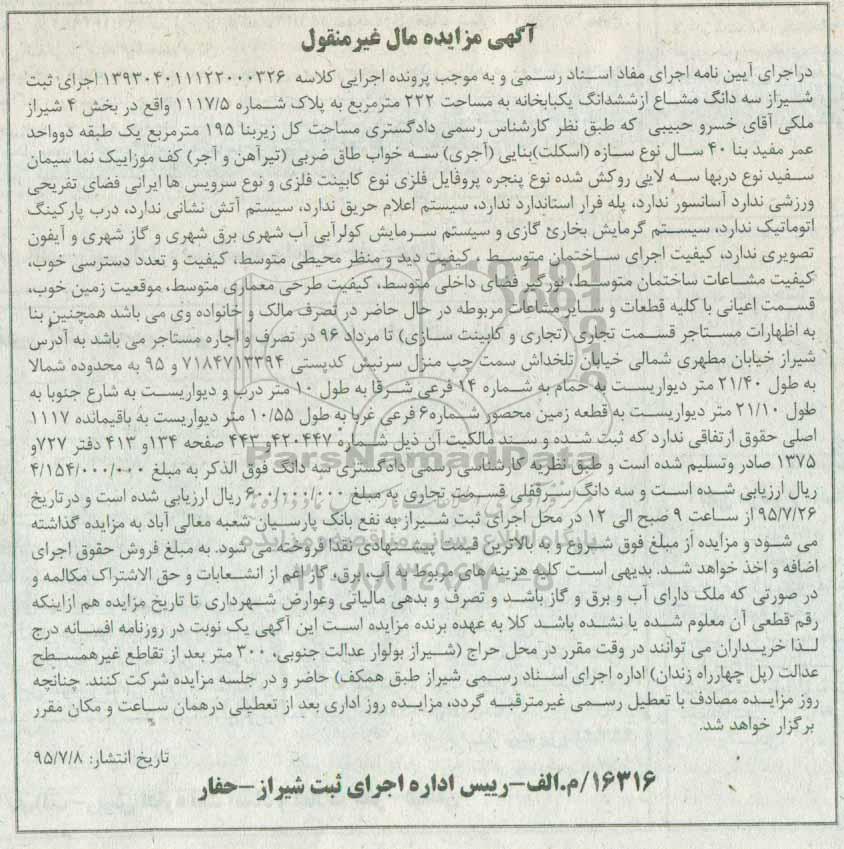 آگهی مزایده مال غیرمنقول
دراجرای آیین نامه اجرای مفاد اسناد رسمی و به موجب پرونده اجرایی کلاسه ۱۳۹۳۰۴۰۱۱۱۲۲۰۰۰۳۲۶ اجرای ثبت
شیراز سه دانگ مشاع ازششدانگ یکبابخانه به مساحت ۲۲۲ مترمربع به پلاک شماره ۱۱۱۷/۵ واقع در بخش ۴ شیراز
ملکی آقای خسرو حبیبی که طبق نظر کارشناس رسمی دادگستری مساحت کل زیربنا ۱۹۵ مترمربع یک طبقه دوواحد
عمر مفید بنا ۴۰ سال نوع سازه (اسکلت)بنایی (آجری) سه خواب طاق ضربی (تیرآهن و آجر) کف موزاییک نما سیمان
سفید نوع دربها سه لایی روکش شده نوع پنجره پروفایل فلزی نوع کابینت فلزی و نوع سرویس ها ایرانی فضای تفریحی
ورزشی ندارد آسانسور ندارد، پله فرار استاندارد ندارد، سیستم اعلام حریق ندارد، سیستم آتش نشانی ندارد، درب پارکینگ
اتوماتیک ندارد، سیستم گرمایش بخاری گازی و سیستم سرمایش کولرآبی آب شهری برق شهری و گاز شهری و آیفون
تصویری ندارد، کیفیت اجرای ساختمان متوسط ، کیفیت دید و منظر محیطی متوسط، کیفیت و تعدد دسترسی خوب،
کیفیت مشاعات ساختمان متوسط، نورگیر فضای داخلی متوسط، کیفیت طرحی معماری متوسط، موقعیت زمین خوب،
قسمت اعیانی با کلیه قطعات و سایر مشاعات مربوطه در حال حاضر در تصرف مالک و خانواده وی می باشد همچنین بنا
به اظهارات مستاجر قسمت تجاری (تجاری و کابینت سازی) تا مرداد ۹۶ در تصرف و اجاره مستاجر می باشد به آدرس
شیراز خیابان مطهری شمالی خیابان تلخداش سمت چپ منزل سرنبش کدپستی ۷۱۸۴۷۱۳۳۹۴ و ۹۵ به محدوده شمالا
به طول ۲۱/۴۰ متر دیواریست به حمام به شماره ۱۴ فرعی شرقا به طول ۱۰ متر درب و دیواریست به شارع جنوبا به
طول ۲۱/۱۰ متر دیواریست به قطعه زمین محصور شماره۶ فرعی غربا به طول ۱۰/۵۵ متر دیواریست به باقیمانده ۱۱۱۷
اصلی حقوق ارتفاقی ندارد که ثبت شده و سند مالکیت آن ذیل شماره ۴۲۰۴۴۷و ۴۴۳ صفحه ۱۳۴و ۴۱۳ دفتر ۷۲۷و
۱۳۷۵ صادر وتسلیم شده است و طبق نظریه کارشناسی رسمی دادگستری سه دانگ فوق الذکر به مبلغ ۴/۱۵۴/۰۰۰/۰۰۰
ریال ارزیابی شده است و سه دانگ سرقفلی قسمت تجاری به مبلغ ۶۰۰/۰۰۰/۰۰۰ ریال ارزیابی شده است و درتاریخ
۹۵/۷/۲۶ از ساعت ۹ صبح الی ۱۲ در محل اجرای ثبت شیراز به نفع بانک پارسیان شعبه معالی آباد به مزایده گذاشته
می شود و مزایده از مبلغ فوق شروع و به بالاترین قیمت پیشنهادی نقدا فروخته می شود. به مبلغ فروش حقوق اجرای
اضافه و اخذ خواهد شد. بدیهی است کلیه هزینه های مربوط به آب، برق، گاز اعم از انشعابات و حق الاشتراک مکالمه و
در صورتی که ملک دارای آب و برق و گاز باشد و تصرف و بدهی مالیاتی وعوارض شهرداری تا تاریخ مزایده هم ازاینکه
رقم قطعی آن معلوم شده یا نشده باشد کلا به عهده برنده مزایده است این آگهی یک نوبت در روزنامه افسانه درج
لذا خریداران می توانند در وقت مقرر در محل حراج (شیراز بولوار عدالت جنوبی، ۳۰۰ متر بعد از تقاطع غیرهمسطح
عدالت (پل چهارراه زندان) اداره اجرای اسناد رسمی شیراز طبق همکف) حاضر و در جلسه مزایده شرکت کنند. چنانچه
روز مزایده مصادف با تعطیل رسمی غیرمترقبه گردد، مزایده روز اداری بعد از تعطیلی درهمان ساعت و مکان مقرر
برگزار خواهد شد.
تاریخ انتشار: ۹۵/۷/۸
۱۶۳۱۶/م.الف-رییس اداره اجرای ثبت شیراز-حفار
ParsNamadData
پایگاه اطلاع رسانی مناقصه و مزایده